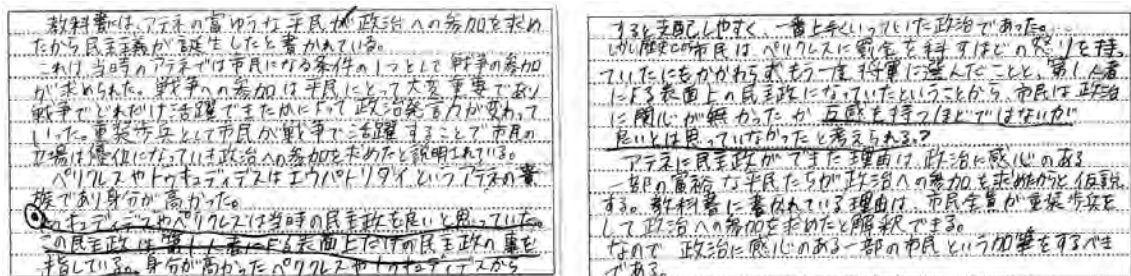 教科書は、アテネの富ゆうな平民が政治への参加を求め
たから民主主義が誕生したと書かれている。
これは、当時のアテネでは市民になる条件の1つとして戦争の参加
が求められた。戦争への参加は平民にとって大変重要であり
戦争でどれだけ活躍できたかによって政治発言力が変わって
いった。重装歩兵として市民が戦争で活躍することで市民の
立場は優位になっていき政治への参加を求めたと説明されている。
ペリクレスやトゥキュディデスはエウパトリダイというアテネの貴
族であり身分が高かった。
トゥキュディデスやペリクレスは当時の民主政を良いと思っていた。
この民主政は第1人者による表面上だけの民主政の事を
指している。身分が高かったペリクレスやトゥキュディデスから
すると支配しやすく、一番上手くいっていた政治であった。
しかし歴史には市民はペリクレスに罰金を科すほどの怒りを持っ
ていたにもかかわらずもう一度将軍に選んだことと、第1人者
による表面上の民主政になっていたということから、市民は政治
に関心が無かったか反感を持つほどではないが
良いとは思っていなかったと考えられる?
アテネに民主政ができた理由は、政治に感心のある
一部の富裕な平民たちが政治への参加を求めたからと仮説
する。教科書に書かれている理由は、市民全員が重装歩兵を
して政治への参加を求めたと解釈できる。
なので 政治に感心のある一部の市民という加筆をするべき
である。